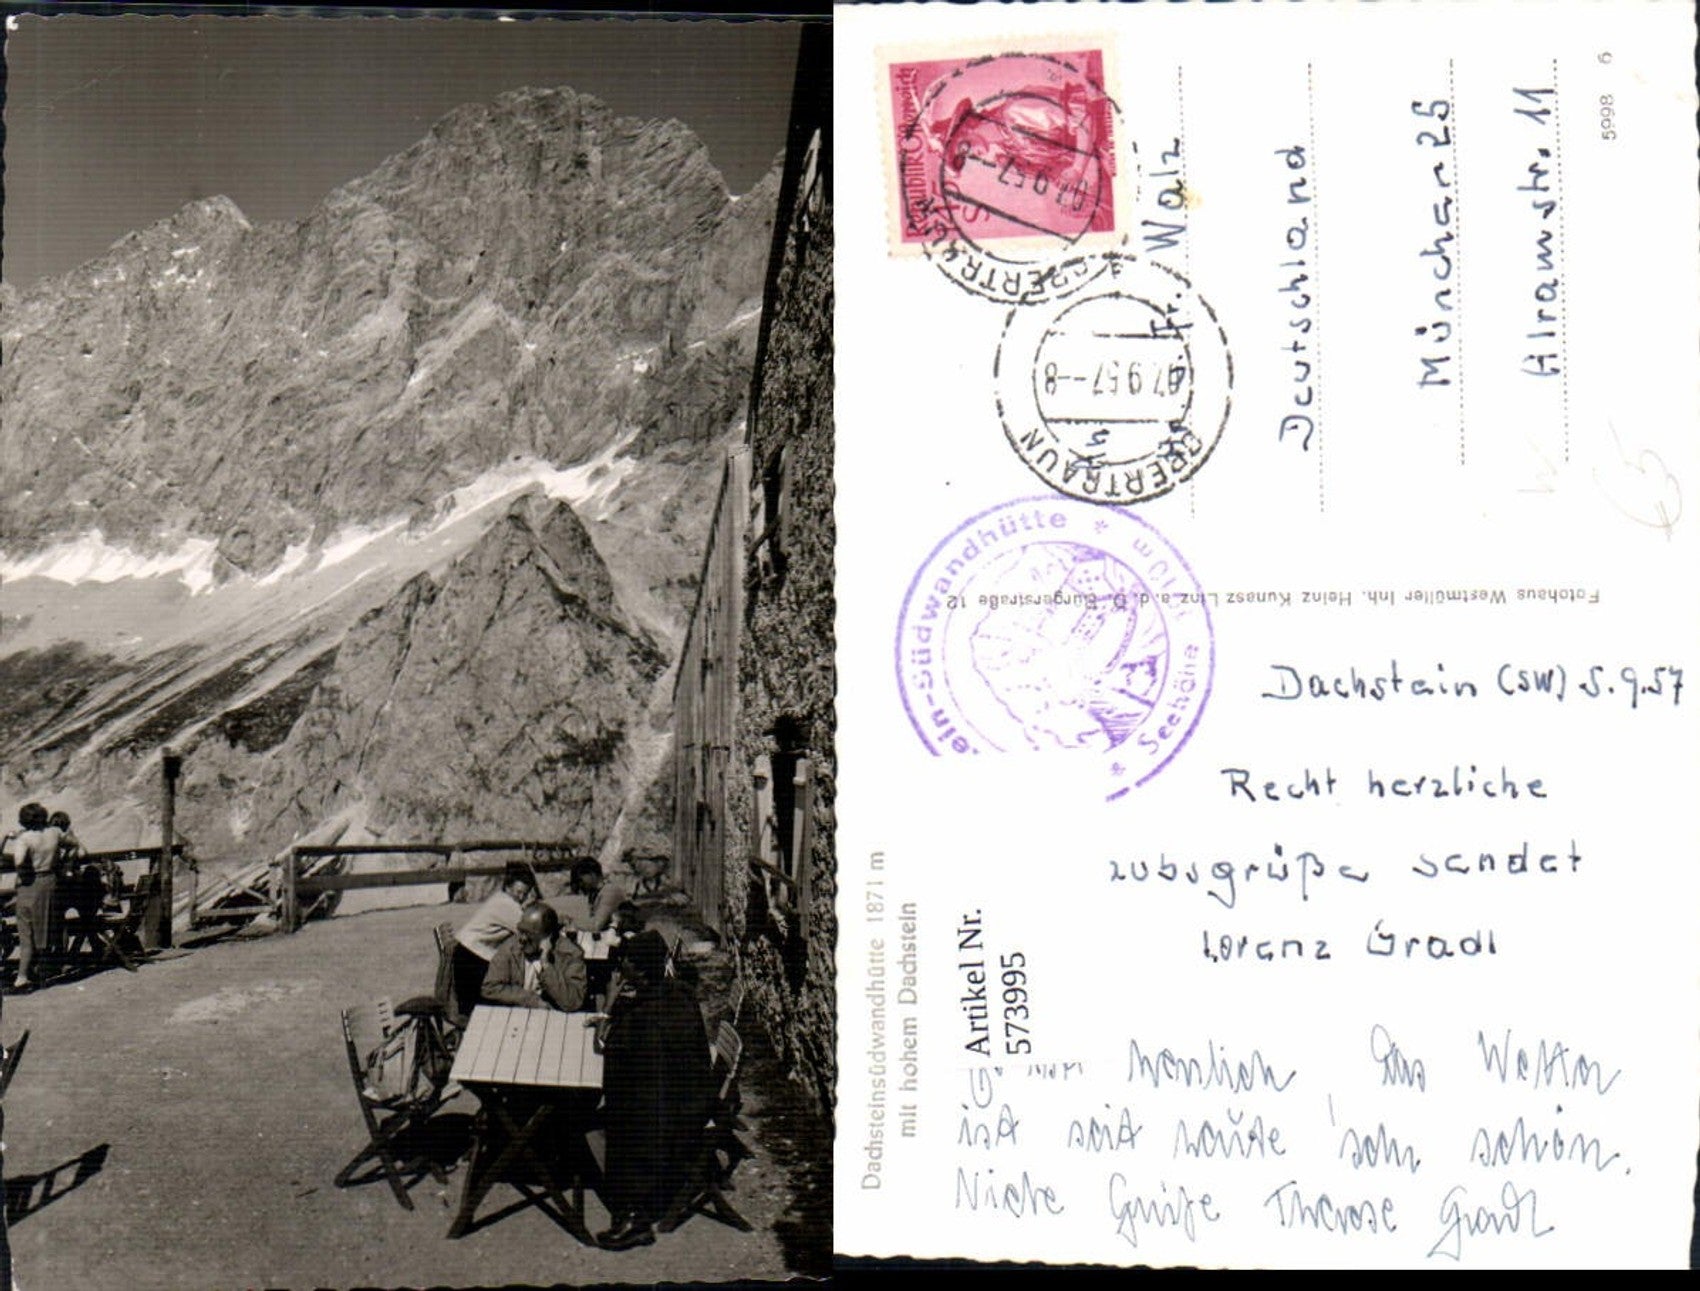 REPUBLIK ÖSTERREICH
S1
OBERTRAUN
07.9.57--8
OBERTRAUN
07.9.57--8
Walz
Deutschland
München 25
Alramstr. 11
5998 6
ein-Südwandhütte * Seehöhe 1910 m *
Fotohaus Westmüller Inh. Heinz Kunasz Linz a. d. D. Bürgerstraße 12
Dachsteinsüdwandhütte 1871 m
mit hohem Dachstein
Artikel Nr.
573995
Dachstein (SW) 5.9.57
Recht herzliche
Urbsgrüße sendet
Lorenz Gradl
herrlich Das Wetter
ist seit heute sehr schön.
Viele Grüße Therese Gradl